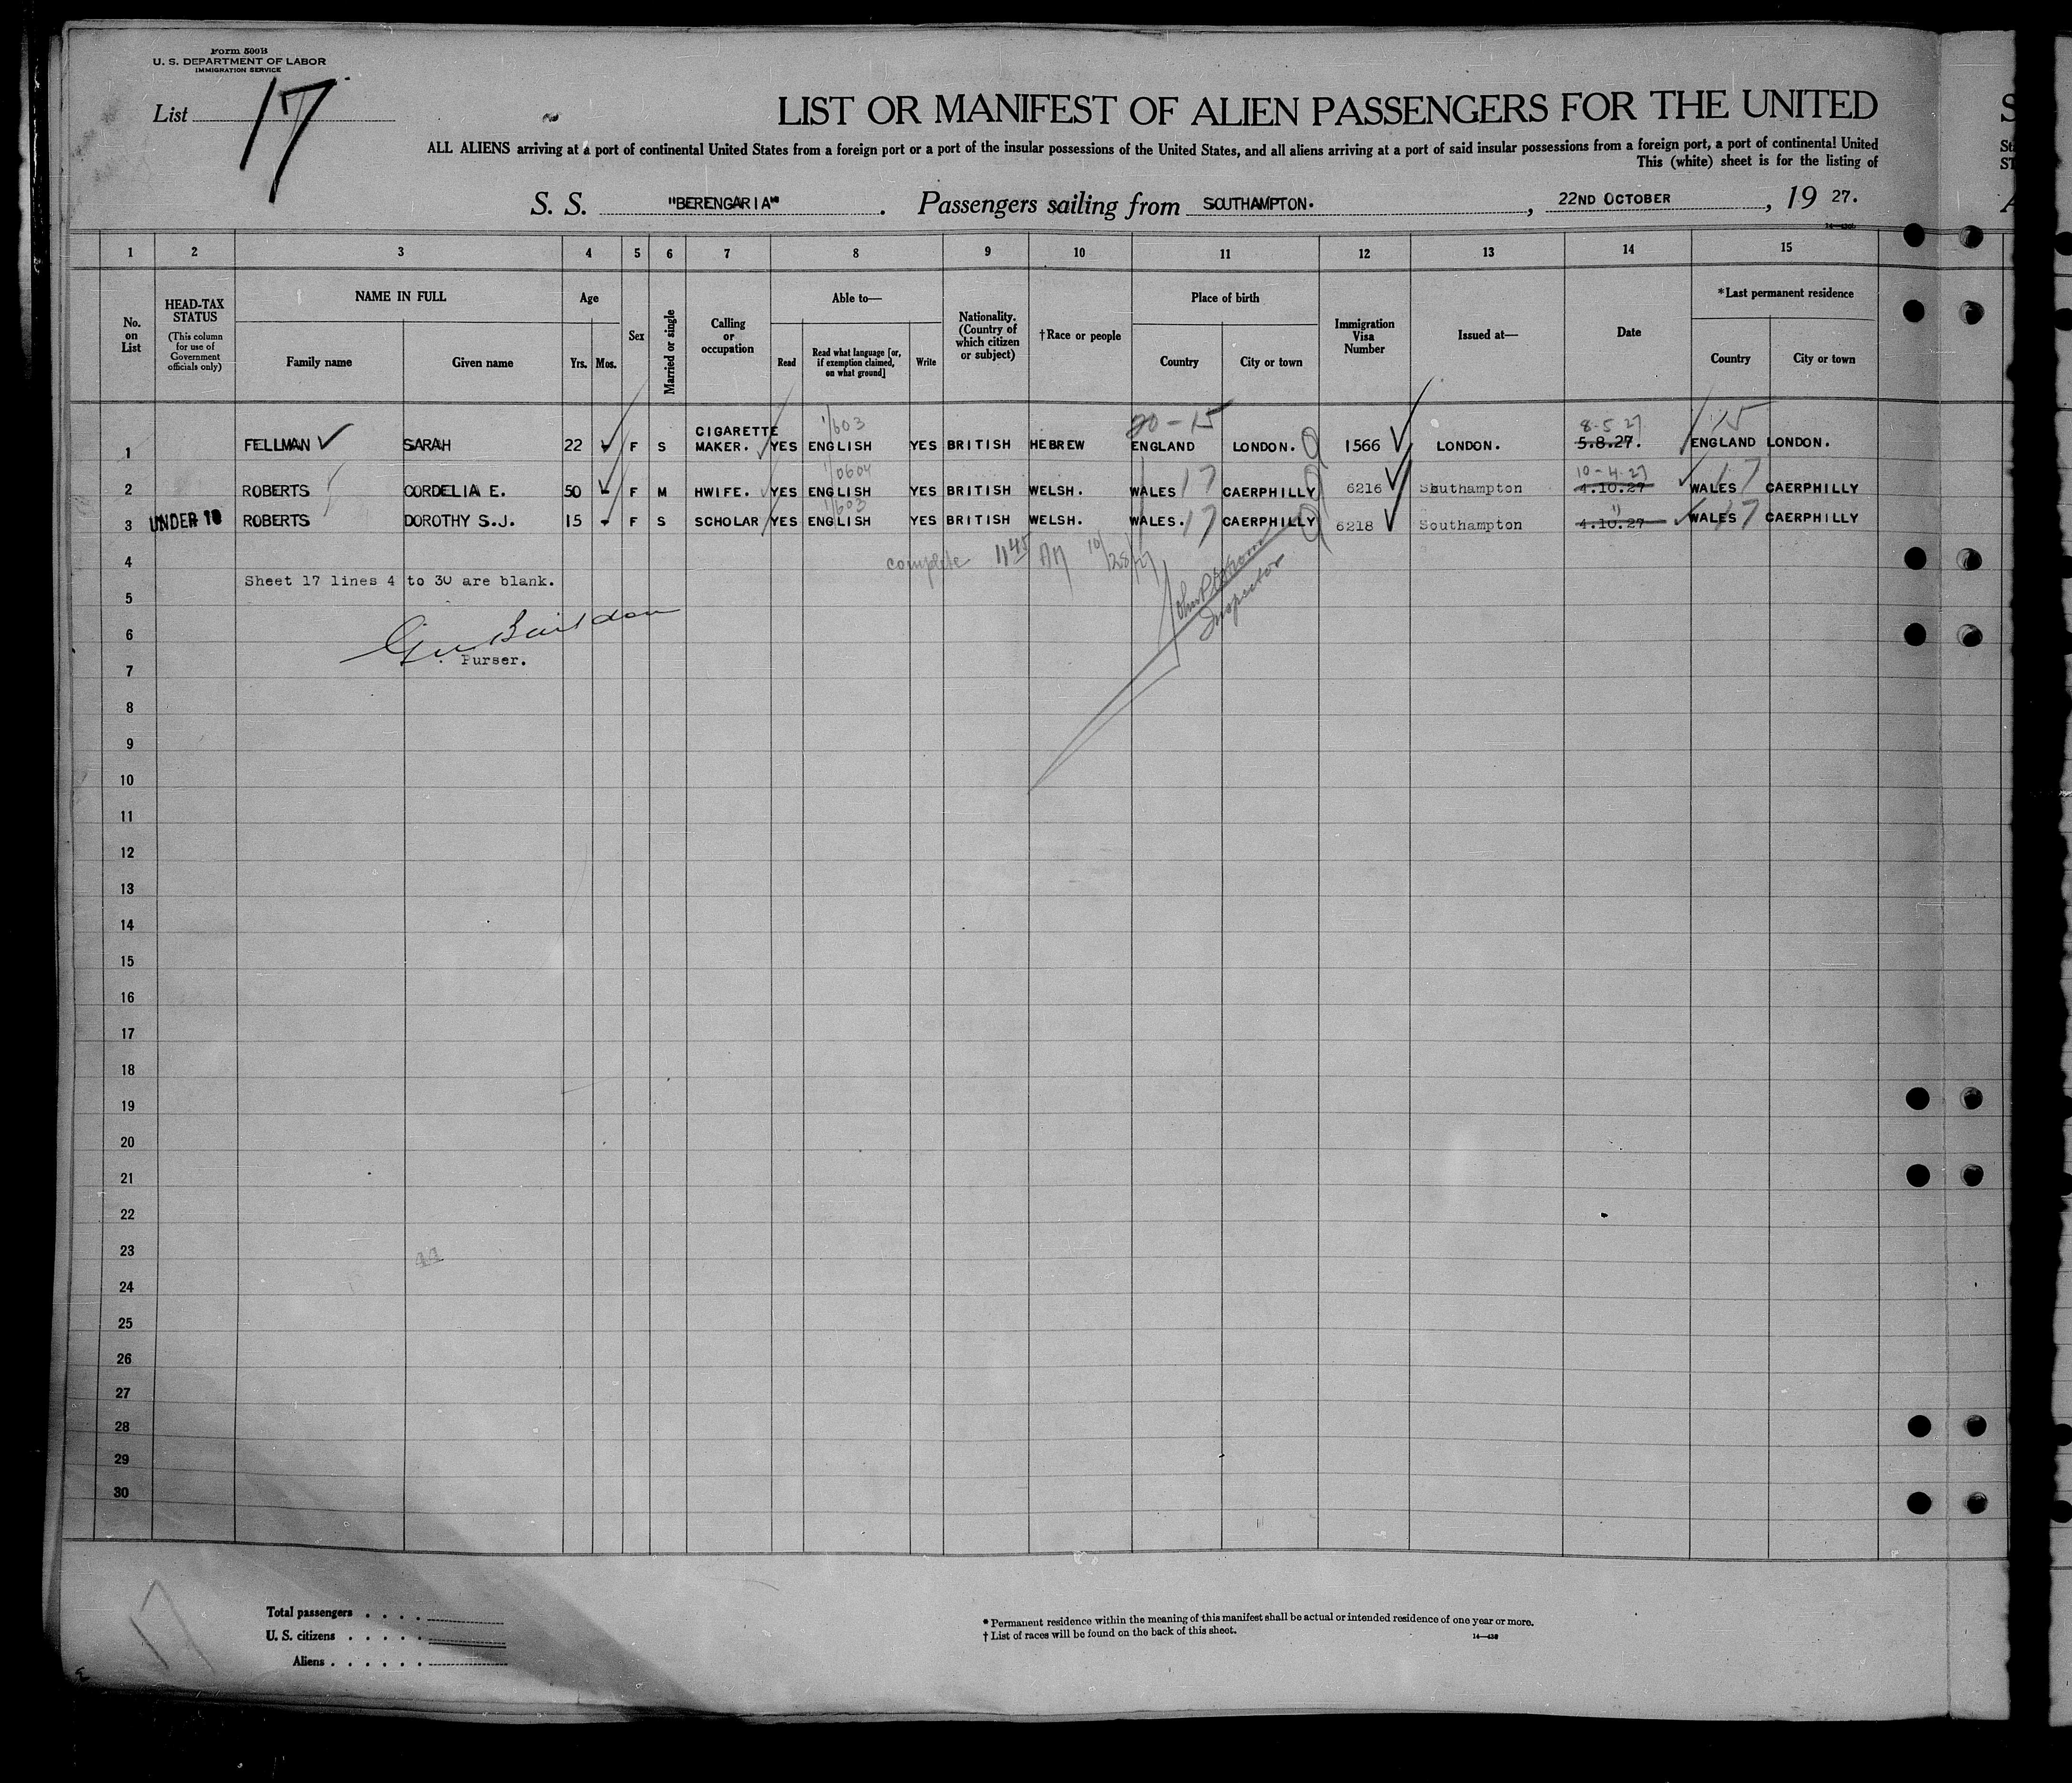 Form 500B
U. S. DEPARTMENT OF LABOR
IMMIGRATION SERVICE
List 17
LIST OR MANIFEST OF ALIEN PASSENGERS FOR THE UNITED
ALL ALIENS arriving at a port of continental United States from a foreign port or a port of the insular possessions of the United States, and all aliens arriving at a port of said insular possessions from a foreign port, a port of continental United
This (white) sheet is for the listing of
S. S. "BERENGARIA". Passengers sailing from SOUTHAMPTON. , 22ND OCTOBER , 19 27.
1 2 3 4 5 6 7 8 9 10 11 12 13 14 15
No. on List
HEAD-TAX STATUS
(This column for use of Government officials only)
NAME IN FULL
Family name Given name
Age
Yrs. Mos.
Sex
Married or single
Calling or occupation
Able to—
Read
Read what language [or, if exemption claimed, on what ground]
Write
Nationality. (Country of which citizen or subject)
†Race or people
Place of birth
Country City or town
Immigration Visa Number
Issued at—
Date
*Last permanent residence
Country City or town
1/603 20-15 8-5 27 15
1 FELLMAN SARAH 22 - F S CIGARETTE MAKER. YES ENGLISH YES BRITISH HEBREW ENGLAND LONDON. 1566 LONDON. 5.8.27. ENGLAND LONDON.
1/0604 10-4-27
2 ROBERTS CORDELIA E. 50 - F M HWIFE. YES ENGLISH YES BRITISH WELSH. WALES 17 CAERPHILLY 6216 Southampton 4.10.27 WALES 17 CAERPHILLY
1/603 "
3 UNDER 16 ROBERTS DOROTHY S.J. 15 - F S SCHOLAR YES ENGLISH YES BRITISH WELSH. WALES. 17 CAERPHILLY 6218 Southampton 4.10.27 WALES 17 CAERPHILLY
complete 11 45 AM 10/28/27
4
Sheet 17 lines 4 to 30 are blank.
Inspector
5
6
Purser.
7
8
9
10
11
12
13
14
15
16
17
18
19
20
21
22
23
24
25
26
27
28
29
30
17
Total passengers . . . .
U. S. citizens . . . . .
Aliens . . . . . .
* Permanent residence within the meaning of this manifest shall be actual or intended residence of one year or more.
† List of races will be found on the back of this sheet.
14—430